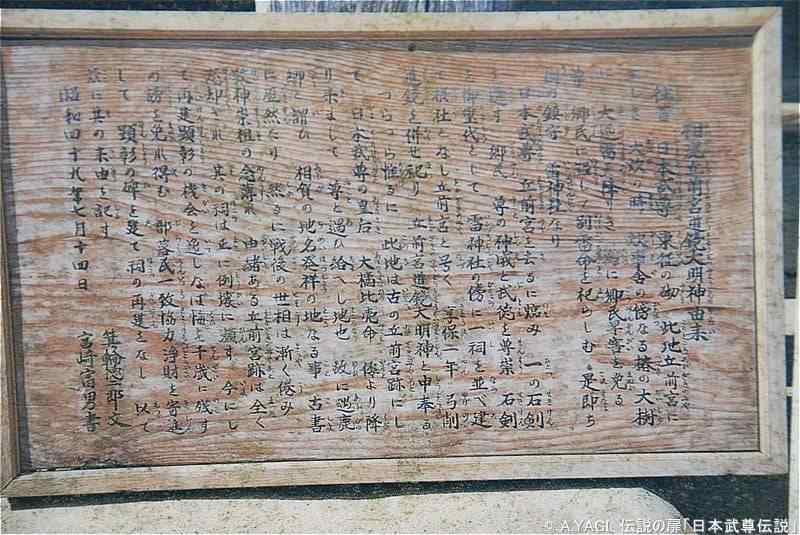 相鹿立前宮道鏡大明神由来
往昔 日本武尊 東征の砌 此地立前宮に
大炊の時 炊事舎の傍なる椿の大樹
に 大迅雷を降し 為に郷民等害を免る
尊 郷民に諭して 別雷命を祀らしむ 是即ち
郷の鎮守 雷神社なり
日本武尊 立前宮を去るに臨み 一の石剣
を遺す 郷民 尊の神威と武徳を尊崇 石剣
を御霊代として 雷神社の傍に一祠を並べ建
て摂社となし立前宮と号く 享保一年 弓削
道鏡を併せ祀り 立前宮道鏡大明神と申奉る
つらつら惟るに 此地は古の立前宮跡にし
て 日本武尊の皇后 大橘比売命 倭より降
り来まして 尊と遇ひ給へし地也 故に遇鹿
郷と謂ひ 相賀の地名発祥の地なる事 古書
に歴然たり 然るに戦後の世相は漸く倦み
敬神崇祖の念薄れ 由緒ある立前宮跡は全く
忘却され 其の祠は正に倒壊に瀕す 今にし
て再建顕彰の機会を逸しなば悔を千歳に残す
の謗を免れ得む 部落民一致協力浄財を寄進
して 顕彰の碑を建て祠の再建をなし 以て
茲に其の来由を記す
昭和四十九年七月十四日
箕輪 郎 文
宮崎富男 書
© A.YAGI, 伝説の扉「日本武尊伝説」